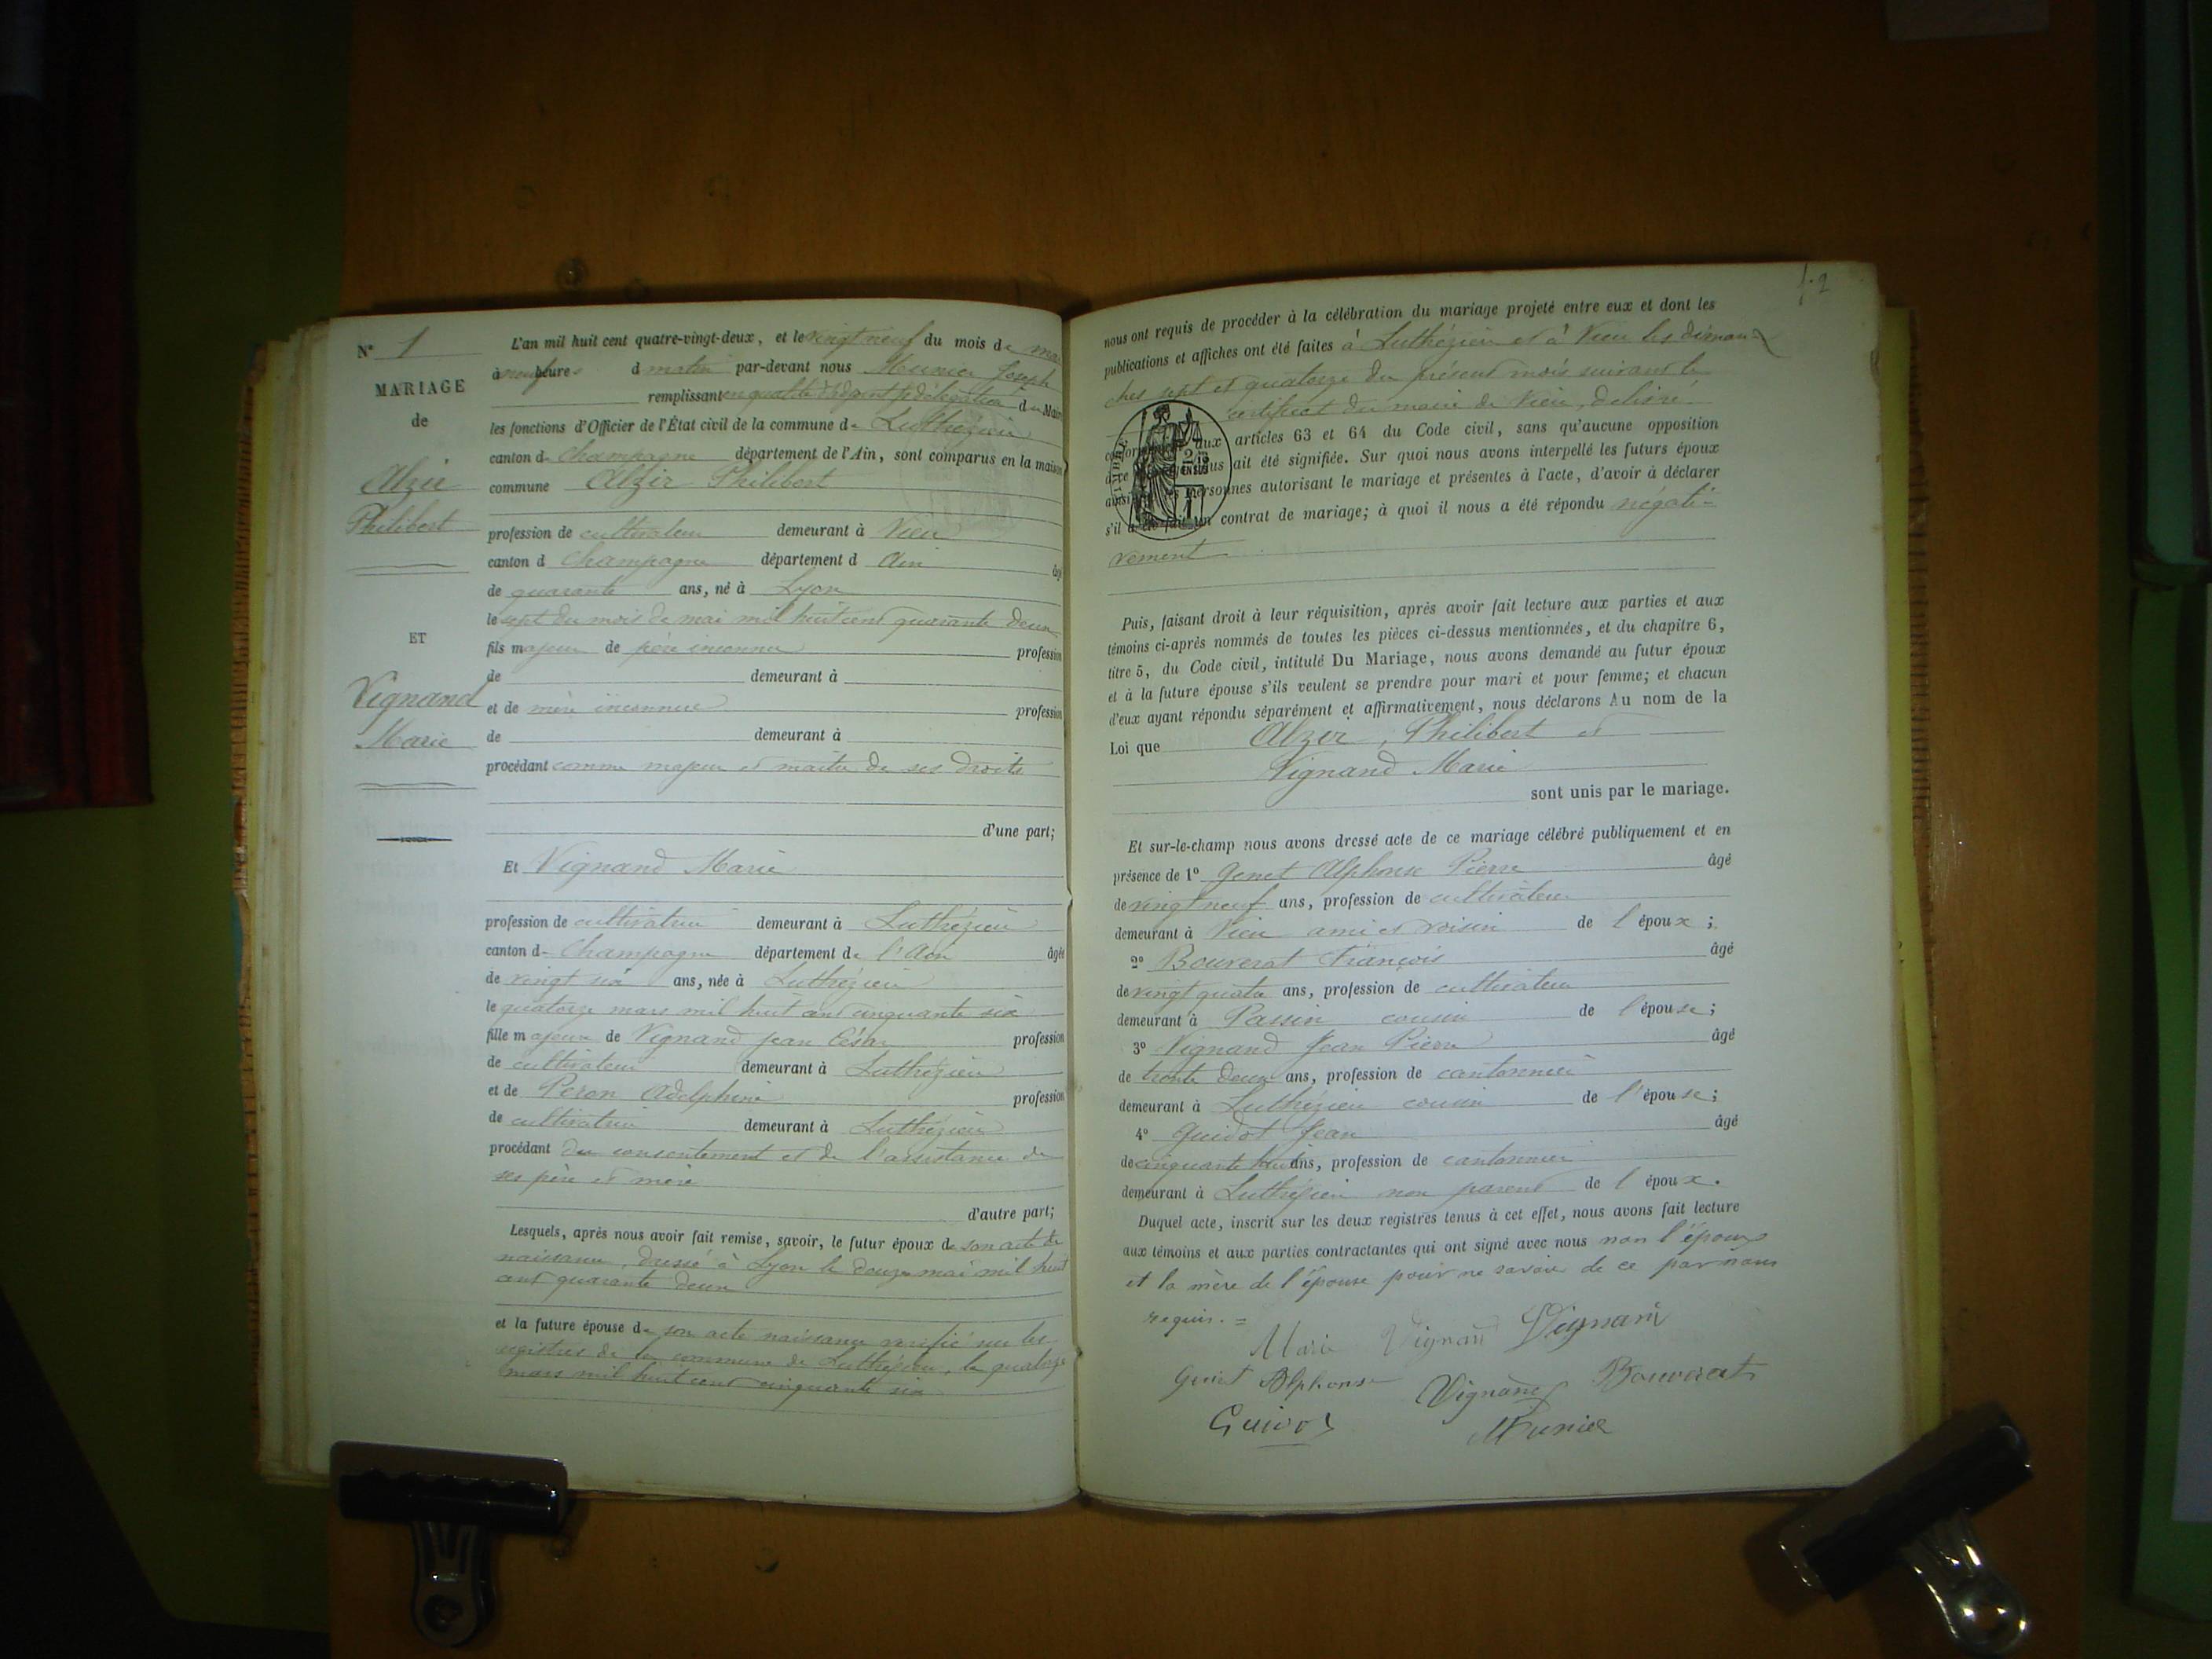 N° 1
MARIAGE
de
Alzir
Philibert
ET
Vignand
Marie
L'an mil huit cent quatre-vingt-deux, et le vingt neuf du mois de mai
à neuf heures d matin par-devant nous Munier Joseph
remplissant en qualité d'adjoint p délégation du Maire
les fonctions d'Officier de l'État civil de la commune de Luthézieu
canton de Champagne département de l'Ain, sont comparus en la maison
commune Alzir Philibert
profession de cultivateur demeurant à Vieu
canton d Champagne département d Ain âgé
de quarante ans, né à Lyon
le sept du mois de mai mil huit cent quarante deux
fils majeur de père inconnu profession
de demeurant à
et de mère inconnue profession
de demeurant à
procédant comme majeur et maître de ses droits
d'une part;
Et Vignand Marie
profession de cultivatrice demeurant à Luthézieu
canton de Champagne département de l'Ain âgée
de vingt six ans, née à Luthézieu
le quatorze mars mil huit cent cinquante six
fille majeure de Vignand Jean César profession
de cultivateur demeurant à Luthézieu
et de Peron Adelphine profession
de cultivatrice demeurant à Luthézieu
procédant du consentement et de l'assistance de
ses père et mère
d'autre part;
Lesquels, après nous avoir fait remise, savoir, le futur époux de son acte de
naissance, dressé à Lyon le douze mai mil huit
cent quarante deux
et la future épouse de son acte naissance vérifié sur les
registres de la commune de Luthézieu, le quatorze
mars mil huit cent cinquante six
f. 2
nous ont requis de procéder à la célébration du mariage projeté entre eux et dont les
publications et affiches ont été faites à Luthézieu et à Vieu les diman-
ches sept et quatorze du présent mois suivant le
certificat du maire de Vieu, délivré
conformément aux articles 63 et 64 du Code civil, sans qu'aucune opposition
ait été signifiée. Sur quoi nous avons interpellé les futurs époux
ainsi que les personnes autorisant le mariage et présentes à l'acte, d'avoir à déclarer
s'il a été fait un contrat de mariage; à quoi il nous a été répondu négati-
vement
TIMBRE
Puis, faisant droit à leur réquisition, après avoir fait lecture aux parties et aux
témoins ci-après nommés de toutes les pièces ci-dessus mentionnées, et du chapitre 6,
titre 5, du Code civil, intitulé Du Mariage, nous avons demandé au futur époux
et à la future épouse s'ils veulent se prendre pour mari et pour femme; et chacun
d'eux ayant répondu séparément et affirmativement, nous déclarons Au nom de la
Loi que Alzir, Philibert et
Vignand Marie
sont unis par le mariage.
Et sur-le-champ nous avons dressé acte de ce mariage célébré publiquement et en
présence de 1° Genet Alphonse Pierre âgé
de vingt neuf ans, profession de cultivateur
demeurant à Vieu ami et voisin de l'époux;
2° Bouverat François âgé
de vingt quatre ans, profession de cultivateur
demeurant à Passin cousin de l'épouse;
3° Vignand Jean Pierre âgé
de trente deux ans, profession de cantonnier
demeurant à Luthézieu cousin de l'épouse;
4° Guidot Jean âgé
de cinquante huit ans, profession de cantonnier
demeurant à Luthézieu non parent de l'époux.
Duquel acte, inscrit sur les deux registres tenus à cet effet, nous avons fait lecture
aux témoins et aux parties contractantes qui ont signé avec nous non l'époux
et la mère de l'épouse pour ne savoir de ce par nous
requis. =
Marie Vignand Vignand
Genet Alphonse Vignand Bouverat
Guidot Munier